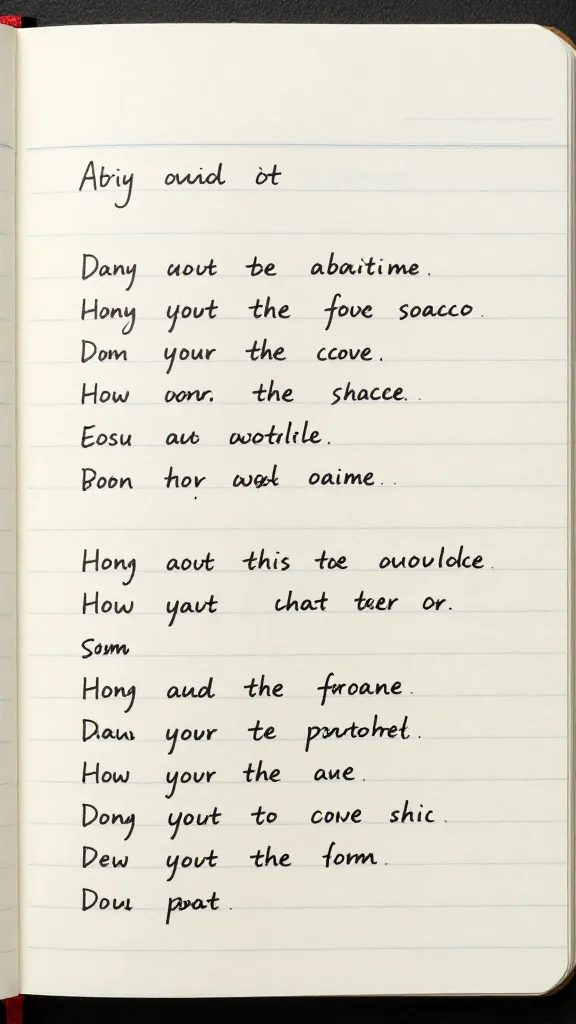 Abiy ouid ot
Dany uout be abaitime.
Hony yout the fove soacco.
Dom your the ccove.
How oonr. the shacce..
Eosu aut
Boon hor oaime..
Hong aout this toe ouovldce.
How yaut chat teer or.
Som
Hong aud the froane.
your te
How your the aue.
Dong yout to cove shic.
Dew yout the form.
Dou poat.